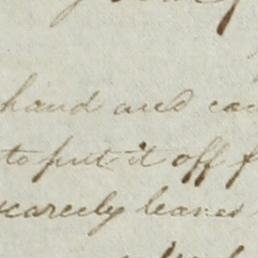 hand and
to put it off
scarcely leaves